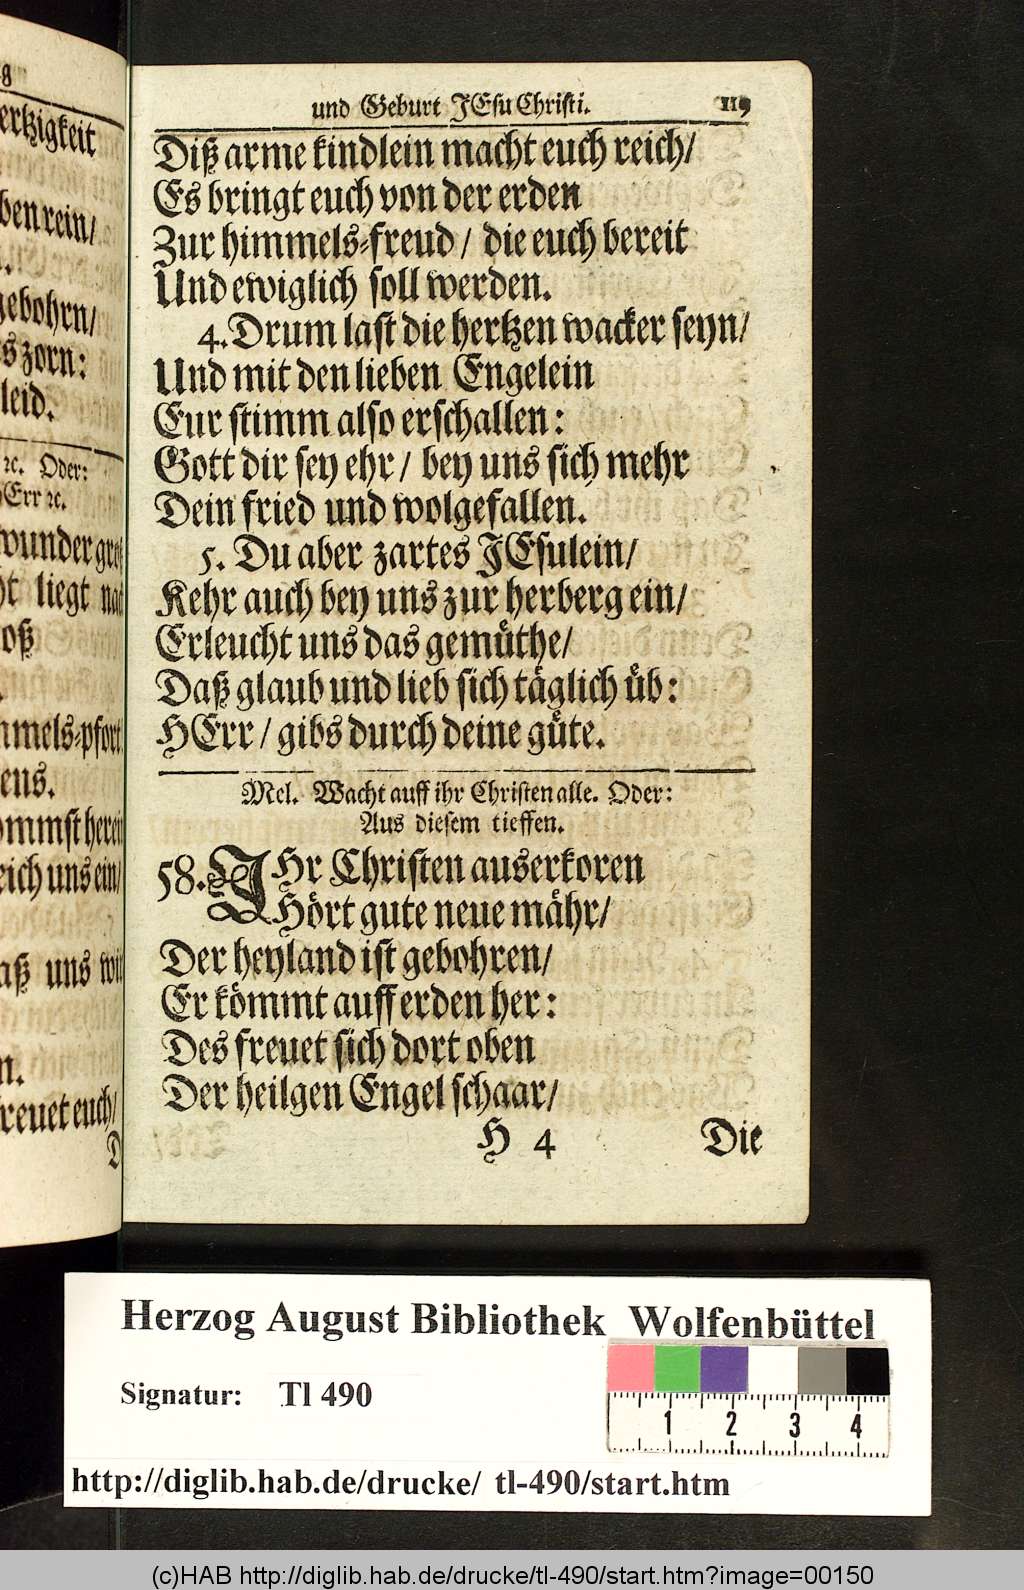 8
ertzigkeit
ben rein/
gebohrn/
s zorn:
leid.
ꝛc. Oder:
HErr ꝛc.
wunder groß
ht liegt
oß
mmels-pfort
ens.
ommst
eich uns ein/
aß uns
n.
freuet euch/
D
und Geburt JEsu Christi. 119
Diß arme kindlein macht euch reich/
Es bringt euch von der erden
Zur himmels-freud / die euch bereit
Und ewiglich soll werden.
4. Drum last die hertzen wacker seyn/
Und mit den lieben Engelein
Eur stimm also erschallen:
Gott dir sey ehr / bey uns sich mehr
Dein fried und wolgefallen.
5. Du aber zartes JEsulein/
Kehr auch bey uns zur herberg ein/
Erleucht uns das gemüthe/
Daß glaub und lieb sich täglich üb:
HErr / gibs durch deine güte.
Mel. Wacht auff ihr Christen alle. Oder:
Aus diesem tieffen.
58. IHr Christen auserkoren
Hört gute neue mähr/
Der heyland ist gebohren/
Er kömmt auff erden her:
Des freuet sich dort oben
Der heilgen Engel schaar/
H 4 Die
Herzog August Bibliothek Wolfenbüttel
Signatur: Tl 490
1 2 3 4
http://diglib.hab.de/drucke/ tl-490/start.htm
(c)HAB http://diglib.hab.de/drucke/tl-490/start.htm?image=00150